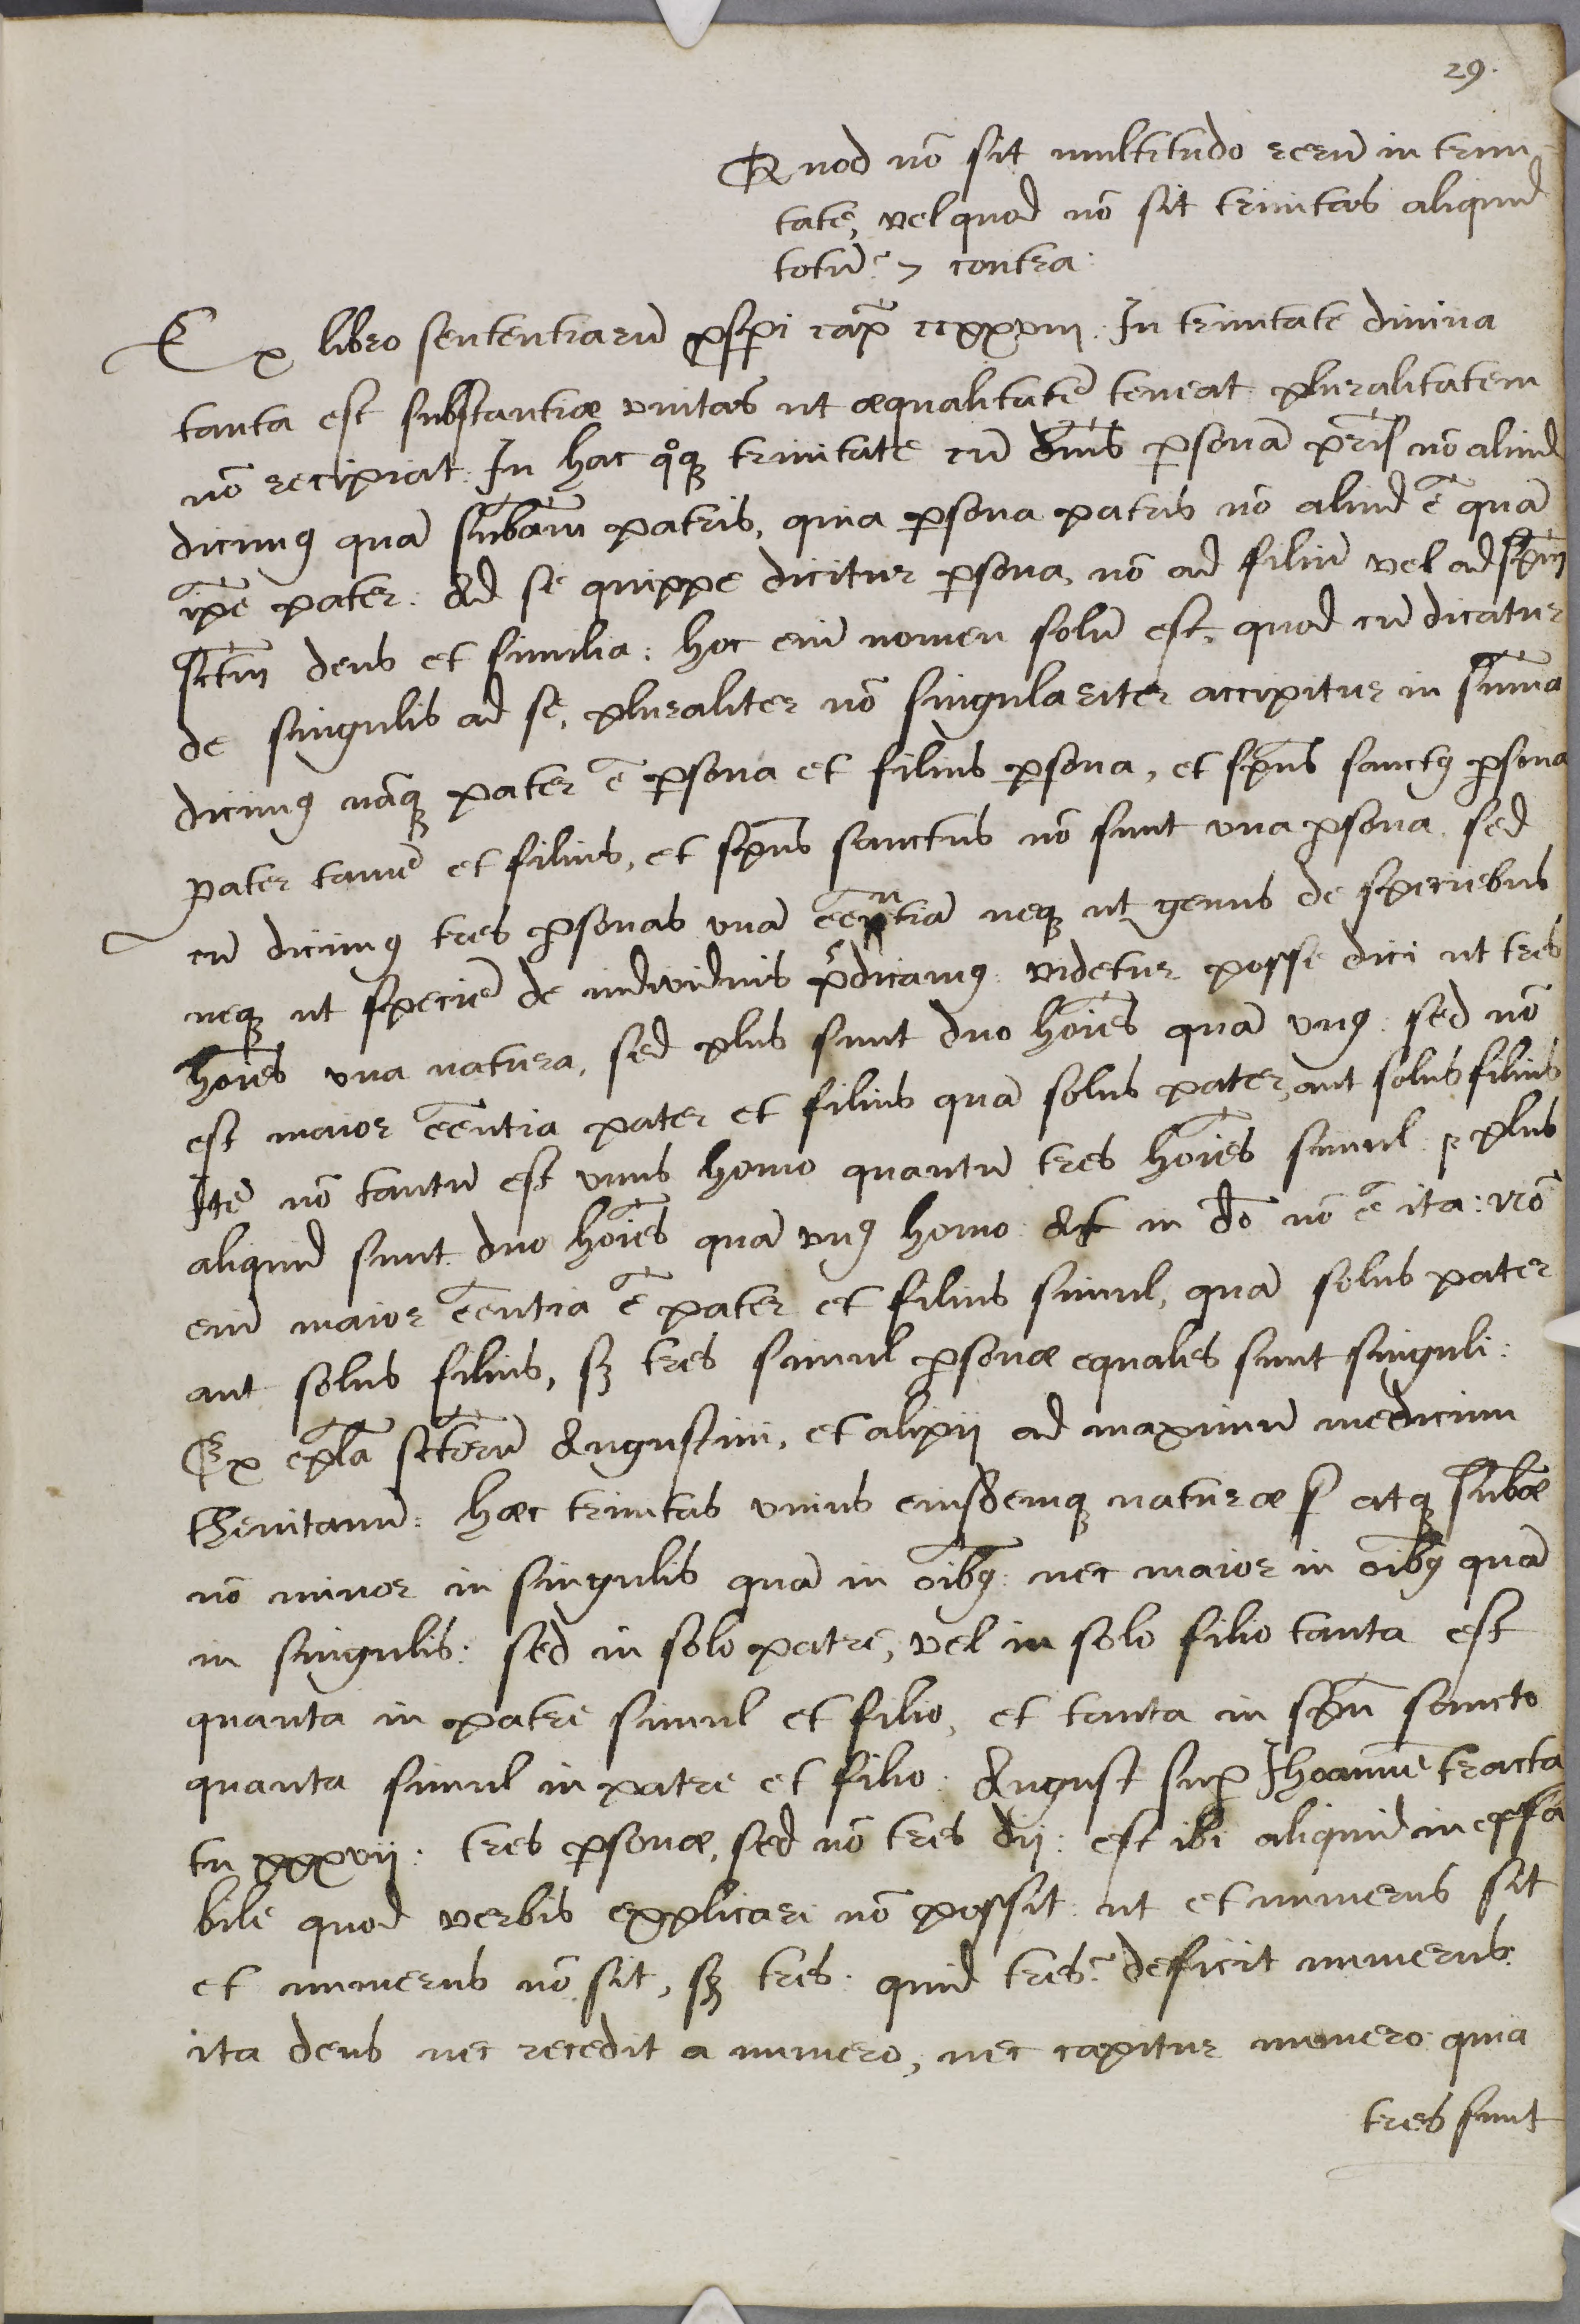 29.
Quod nõ sit multitudo rerũ in trini-
tate, vel quod nõ sit trinitas aliquid
totũ: & contra:
Ex libro sententiarũ ꝓsperi cap̃ ccxxxviii: In trinitate divina
tanta est substantiæ vnitas ut æqualitatẽ teneat pluralitatem
nõ recipiat: In hac qͦqꝫ trinitate cũ dicimꝰ ꝑsonã pr̃is nõ aliud
dicimꝰ quã sub̃am patris, quia ꝑsona patris nõ aliud ẽ quã
ip̃e pater: Ad se quippe dicitur ꝑsona, nõ ad filiũ vel ad sp̃m
sctm̃ deus et similia: hoc eni᷉ nomen solũ est, quod cũ dicatur
de singulis ad se, pluraliter nõ singulariter accipitur in sum̃a
dicimꝰ nãqꝫ pater ẽ ꝑsona et filius ꝑsona, et sp̃us sanctꝰ ꝑsona
pater tamẽ et filius, et sp̃us sanctus nõ sunt vna ꝑsona sed
cũ dicimꝰ tres ꝑsonas vnã eẽntiã neqꝫ ut genus de speciebus
neqꝫ ut speciẽ de individuis p̃dicamꝰ: videtur posse dici ut tres
hoĩes vna natura, sed plus sunt duo hoĩes quã vnꝰ: sed nõ
est maior eẽntia pater et filius quã solus pater, aut solus filius
Itẽ nõ tantũ est vnus homo quantũ tres hoĩes simul: & plus
aliquid sunt duo hoĩes quã vnꝰ homo: At in dõ nõ ẽ ita: nõ
eni᷉ maior eẽntia ẽ pater et filius simul, quã solus pater
aut solus filius, sꝫ tres simul ꝑsonæ equales sunt singuli:
Ex ep̃la sctõrũ Augustini, et alipii ad maximũ medicum
thenitanũ: hæc trinitas vnius eiusdemqꝫ naturæ atqꝫ sub̃æ
nõ minor in singulis quã in oĩbꝰ: nec maior in oĩbꝰ quã
in singulis: sed in solo patre, vel in solo filio tanta est
quanta in patre simul et filio, et tanta in sp̃u sancto
quanta simul in patre et filio: August suꝑ Ihoannẽ tracta
tu xxxvii: tres ꝑsonæ, sed nõ tres dij: est ibi aliquid ineffa
bile quod verbis explicari nõ possit: ut et numerus sit
et numerus nõ sit, sꝫ tres: quid tres? deficit numerus:
ita deus nec recedit a numero, nec capitur numero: quia
tres sunt